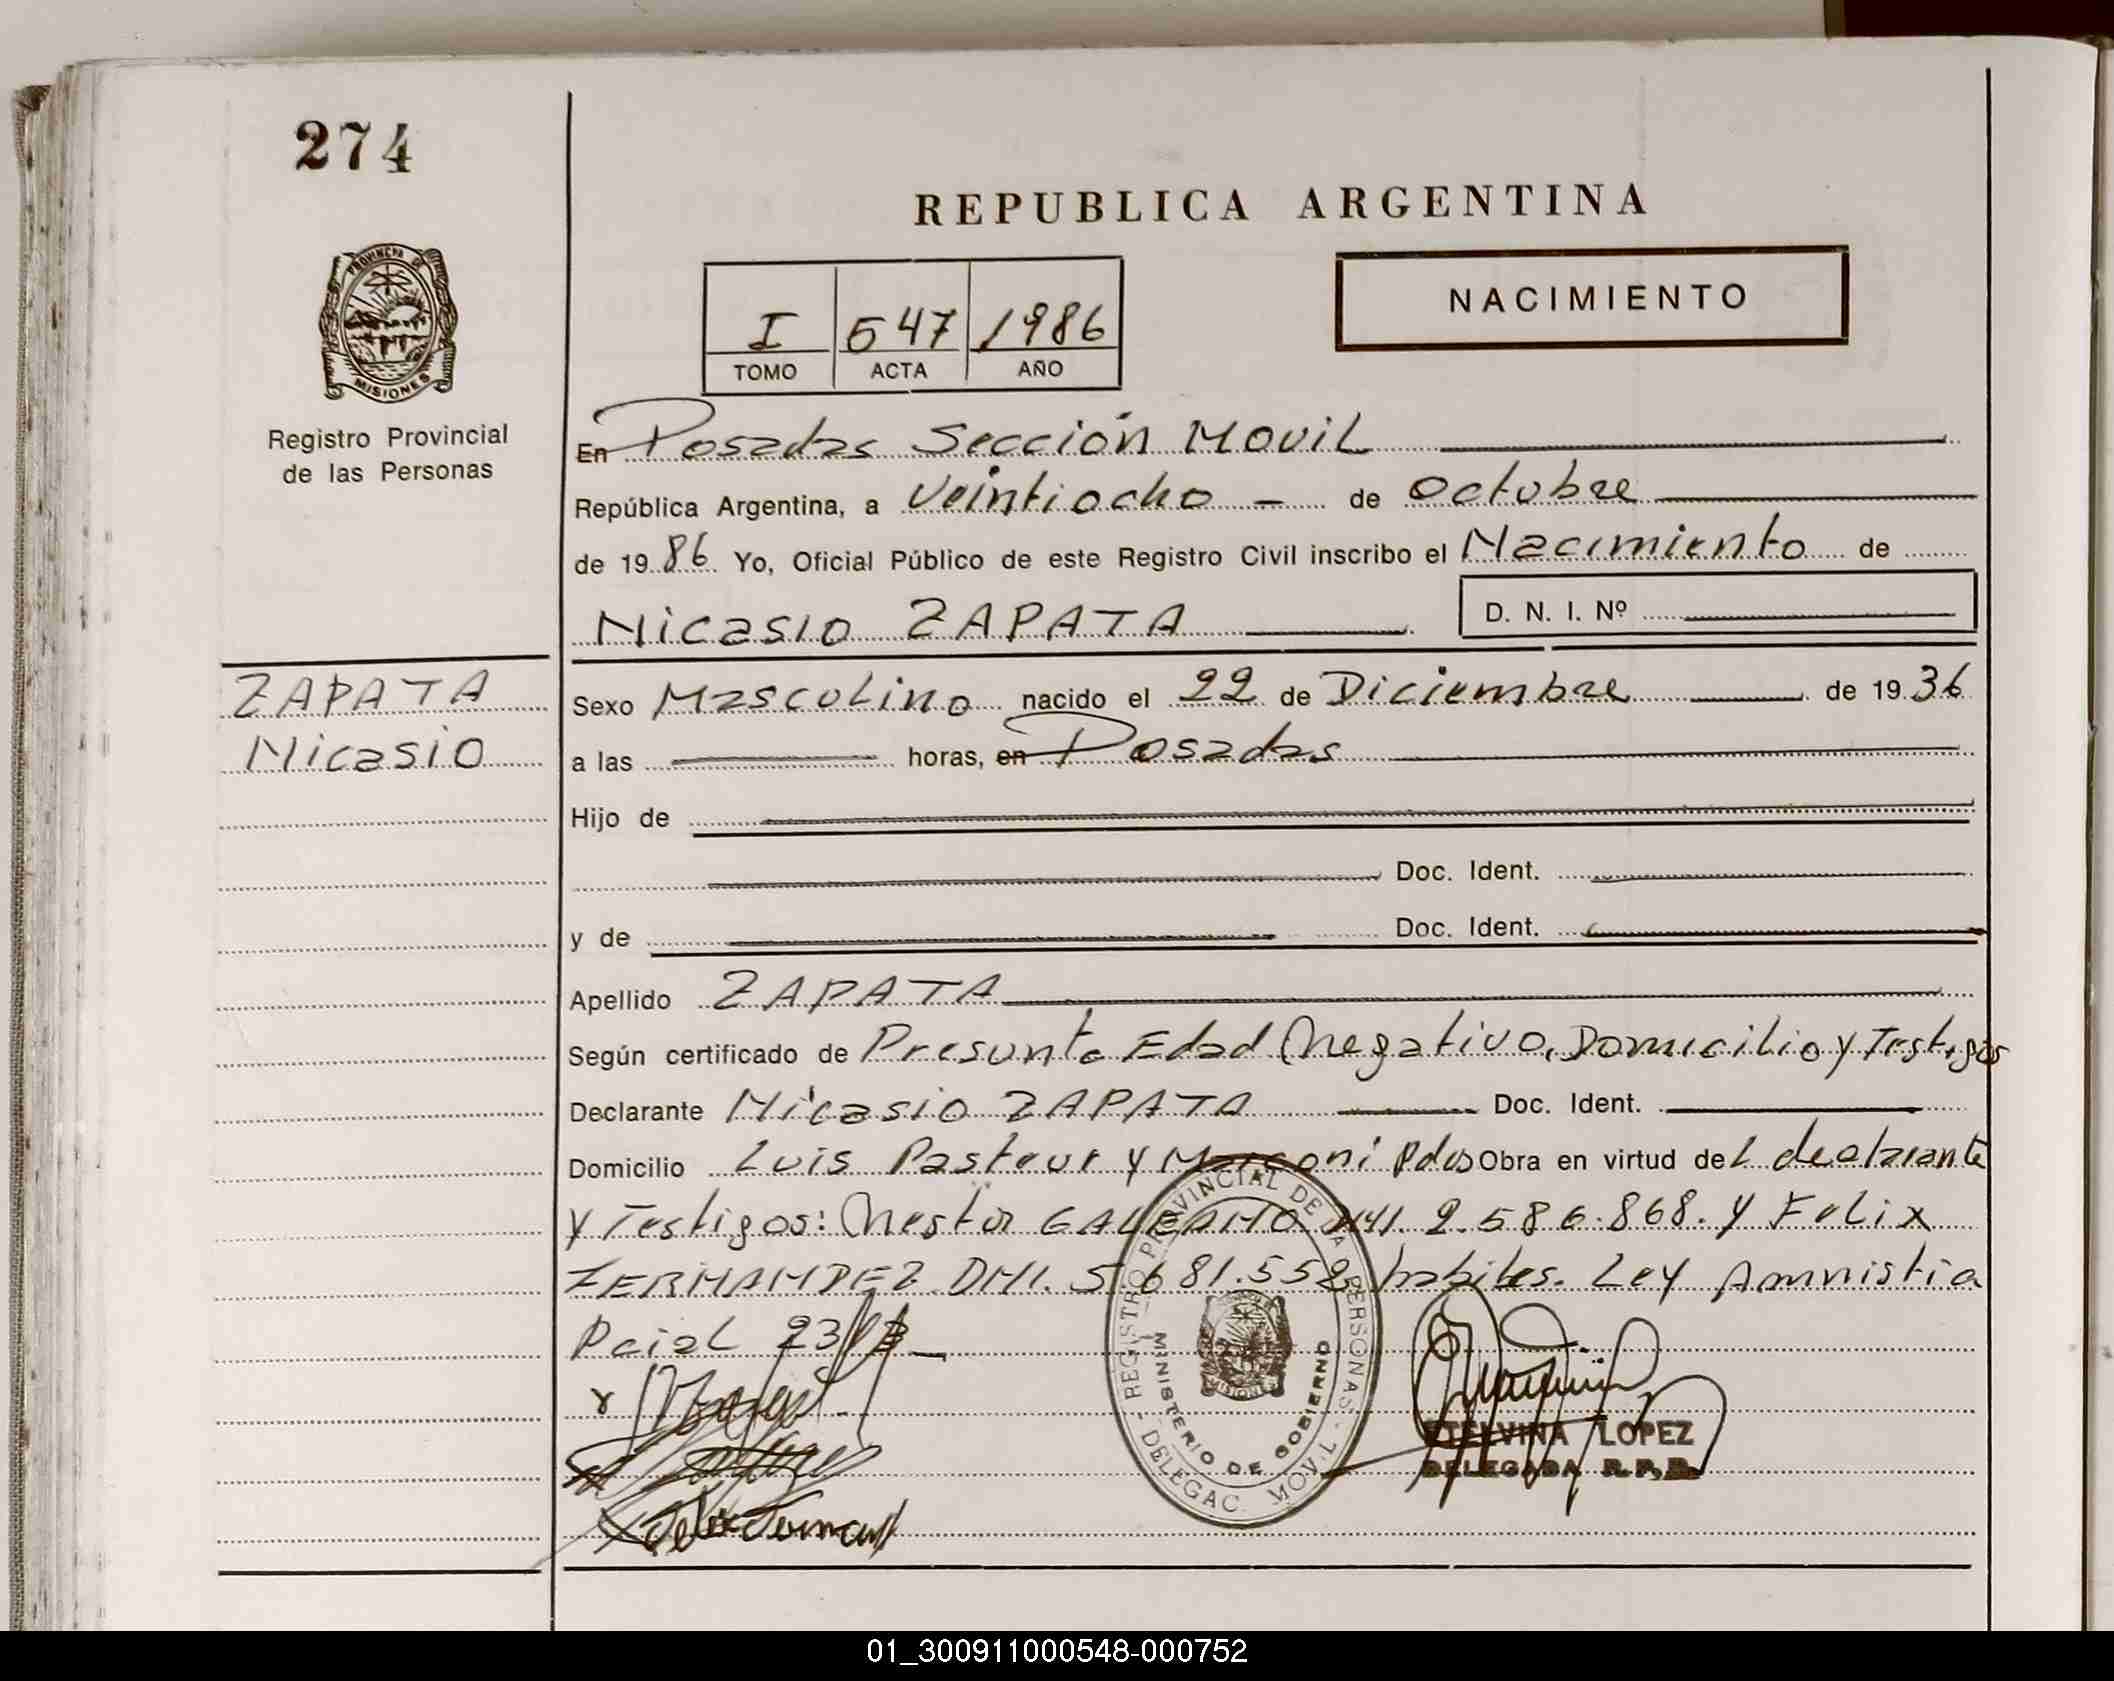 274
REPUBLICA ARGENTINA
PROVINCIA DE
MISIONES
Registro Provincial
de las Personas
I 547 1986
TOMO ACTA AÑO
NACIMIENTO
En Posadas Sección Movil
República Argentina, a Veintiocho - de Octubre
de 1986 Yo, Oficial Público de este Registro Civil inscribo el Nacimiento de
Nicasio ZAPATA D. N. I. Nº
ZAPATA
Nicasio
Sexo Masculino nacido el 22 de Diciembre de 1936
a las horas, en Posadas
Hijo de
Doc. Ident.
y de Doc. Ident.
Apellido ZAPATA
Según certificado de Presunta Edad Negativo, Domicilio y Testigos
Declarante Nicasio ZAPATA Doc. Ident.
Domicilio Luis Pasteur y Marconi Pdas Obra en virtud del declarante
y Testigos: Nestor GALEANO MI. 2.586.868. y Felix
FERNANDEZ DNI. 5.681.552 habiles. Ley Amnistia
Pcial 23
REGISTRO PROVINCIAL DE LA PERSONAS - DELEGAC. MOVIL
MINISTERIO DE GOBIERNO
MISIONES
ETELVINA LOPEZ
DELEGADA R.P.P.
01_300911000548-000752